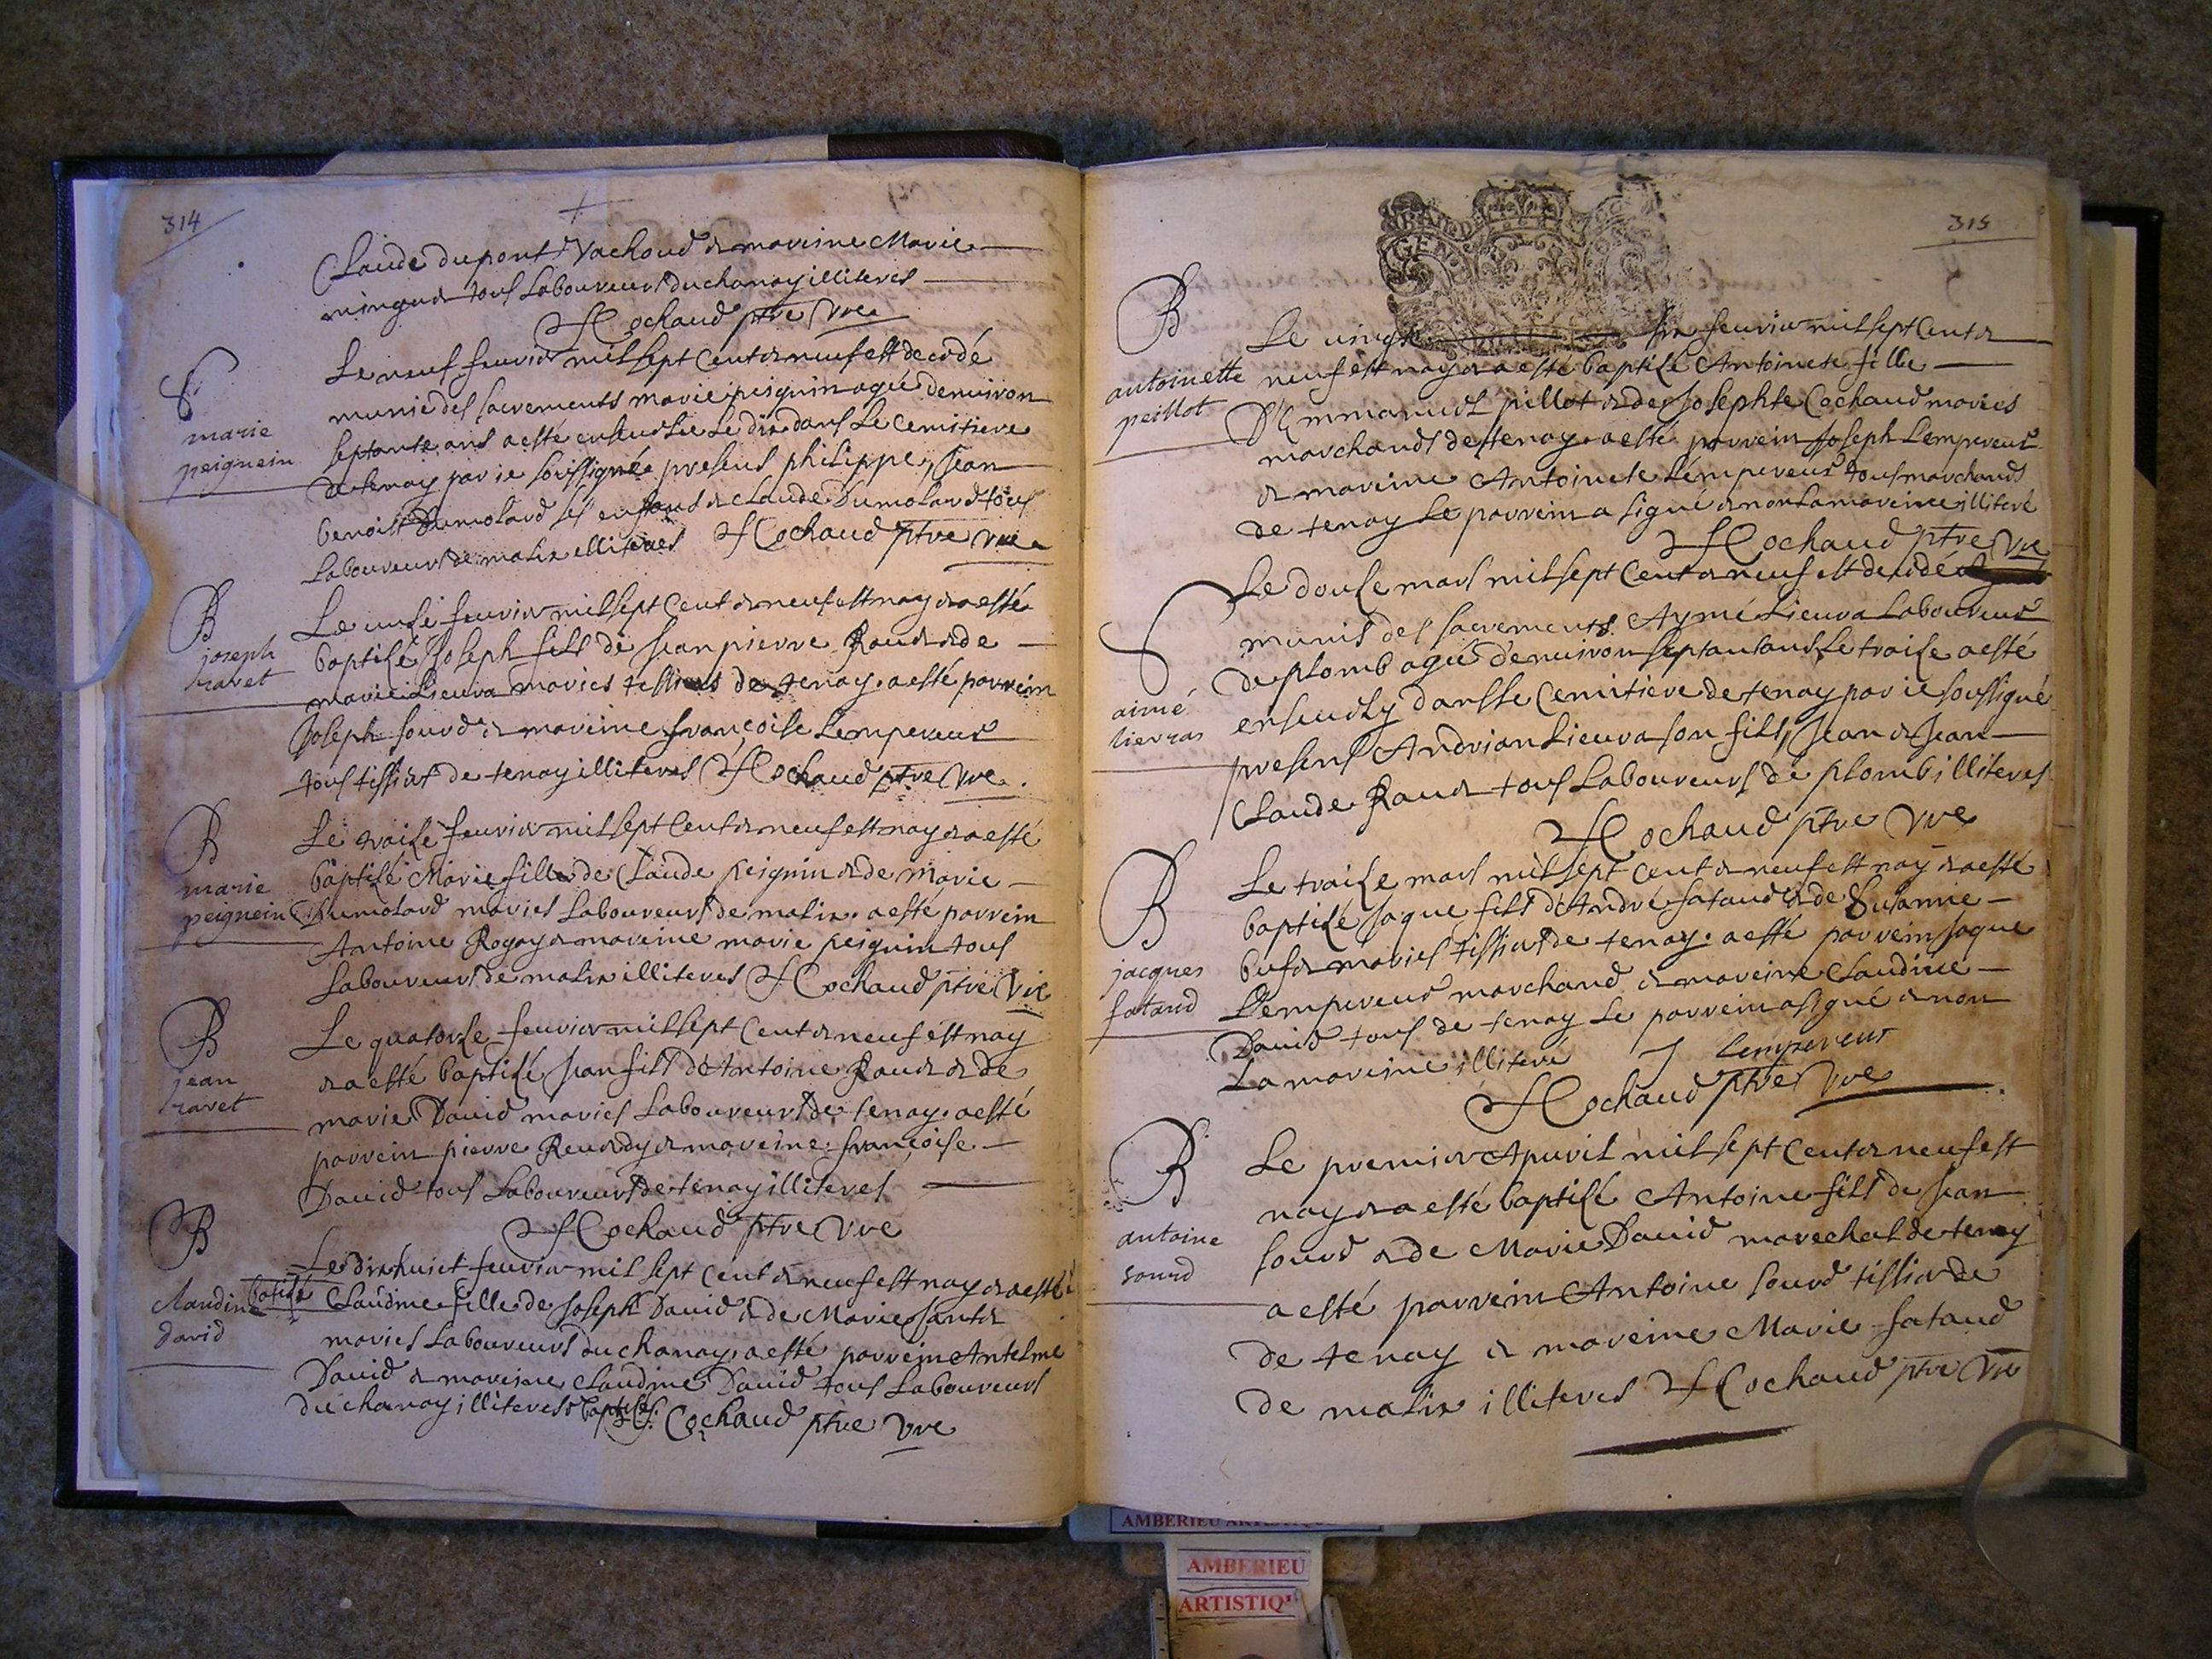 314
Claude dupont Vachoud & mareine Marie
minguet tous Laboureurs du chanay illiteres
Cochaud ptre Vre
S
marie
peignein
Le neuf feuvier mil sept Cent & neuf est decedé
munie des sacrements marie peignin agée denuiron
septante ans a esté enseuelie Le dix dans Le Cemitiere
de tenay par ie soussigné presens philippe, Jean
benoist Dumolard ses enfans & claude Dumolard tous
Laboureurs de malix elliteres Cochaud ptre vre
B
joseph
ravet
Le unse feuvier mil sept Cent & neuf est nay & a esté
baptisé Joseph fils de Jean pierre Rauet & de
marie Lieura maries tissiers de tenay. a esté parrein
Joseph sourd & mareine françoise Lempereur
tous tissiers de tenay illiteres Cochaud ptre Vre
B
marie
peignein
Le traise feuvier mil sept Cent & neuf est nay & a esté
baptisé Marie fille de Claude peignin & de marie
Dumolard maries Laboureurs de malix. a esté parrein
Antoine Rogay & mareine marie peignin tous
Laboureurs de malix illiteres Cochaud ptre Vre
B
jean
ravet
Le quatorse feuvier mil sept Cent & neuf est nay
& a esté baptisé Jean fils de Antoine Rauet & de
marie Dauid maries Laboureurs de tenay. a esté
parrein pierre Reuerdy & mareine françoise
Dauid tous Laboureurs de tenay illiteres
Cochaud ptre Vre
B
Claudine
david
Le dix huict feuvier mil sept Cent & neuf est nay & a esté
batisé Claudine fille de Joseph Dauid & de Marie Jantet
maries Laboureurs du chanay, a esté parrein Antelme
Dauid & mareine Claudine Dauid tous Laboureurs
du chanay illiteres baptisé. Cochaud ptre Vre
315
GEN
B
antoinette
peillot
Le uingt six feuvier mil sept Cent &
neuf est nay & a esté baptisé Antoinete fille
D'Emmanuel pillot & de Josephte Cochaud maries
marchands de tenay. a esté parrein Joseph Lempereur
& mareine Antoinete Lempereur tous marchands
de tenay Le parrein a signé & non La mareine illiteré
Cochaud ptre Vre
S
aimé
lievras
Le douse mars mil sept Cent & neuf est decedé
munis des sacrements Aymé Lieura Laboureur
de plomb agé denuiron septant ans Le traise a esté
enseuely dans Le Cemitiere de tenay par ie soussigné
presens Andrian Lieura son fils, Jean & Jean
Claude Rauet tous Laboureurs de plomb illiteres
Cochaud ptre Vre
B
jacques
fatand
Le traise mars mil sept Cent & neuf est nay & a esté
baptisé Jaque fils d'André fataud & de Susanne
bufet maries tissiers de tenay. a esté parrein Jaque
Lempereur marchand & mareine Claudine
Dauid tous de tenay Le parrein a signé & non
La mareine illiteré J Lempereur
Cochaud ptre Vre
B
antoine
sourd
Le premier Apuril mil sept Cent & neuf est
nay & a esté baptisé Antoine fils de Jean
sourd & de Marie Dauid marechal de tenay
a esté parrein Antoine sourd tissier de
de tenay & mareine Marie fataud
de malix illiteres Cochaud ptre Vre
AMBERIEU ARTISTIQ
AMBERIEU
ARTISTIQ